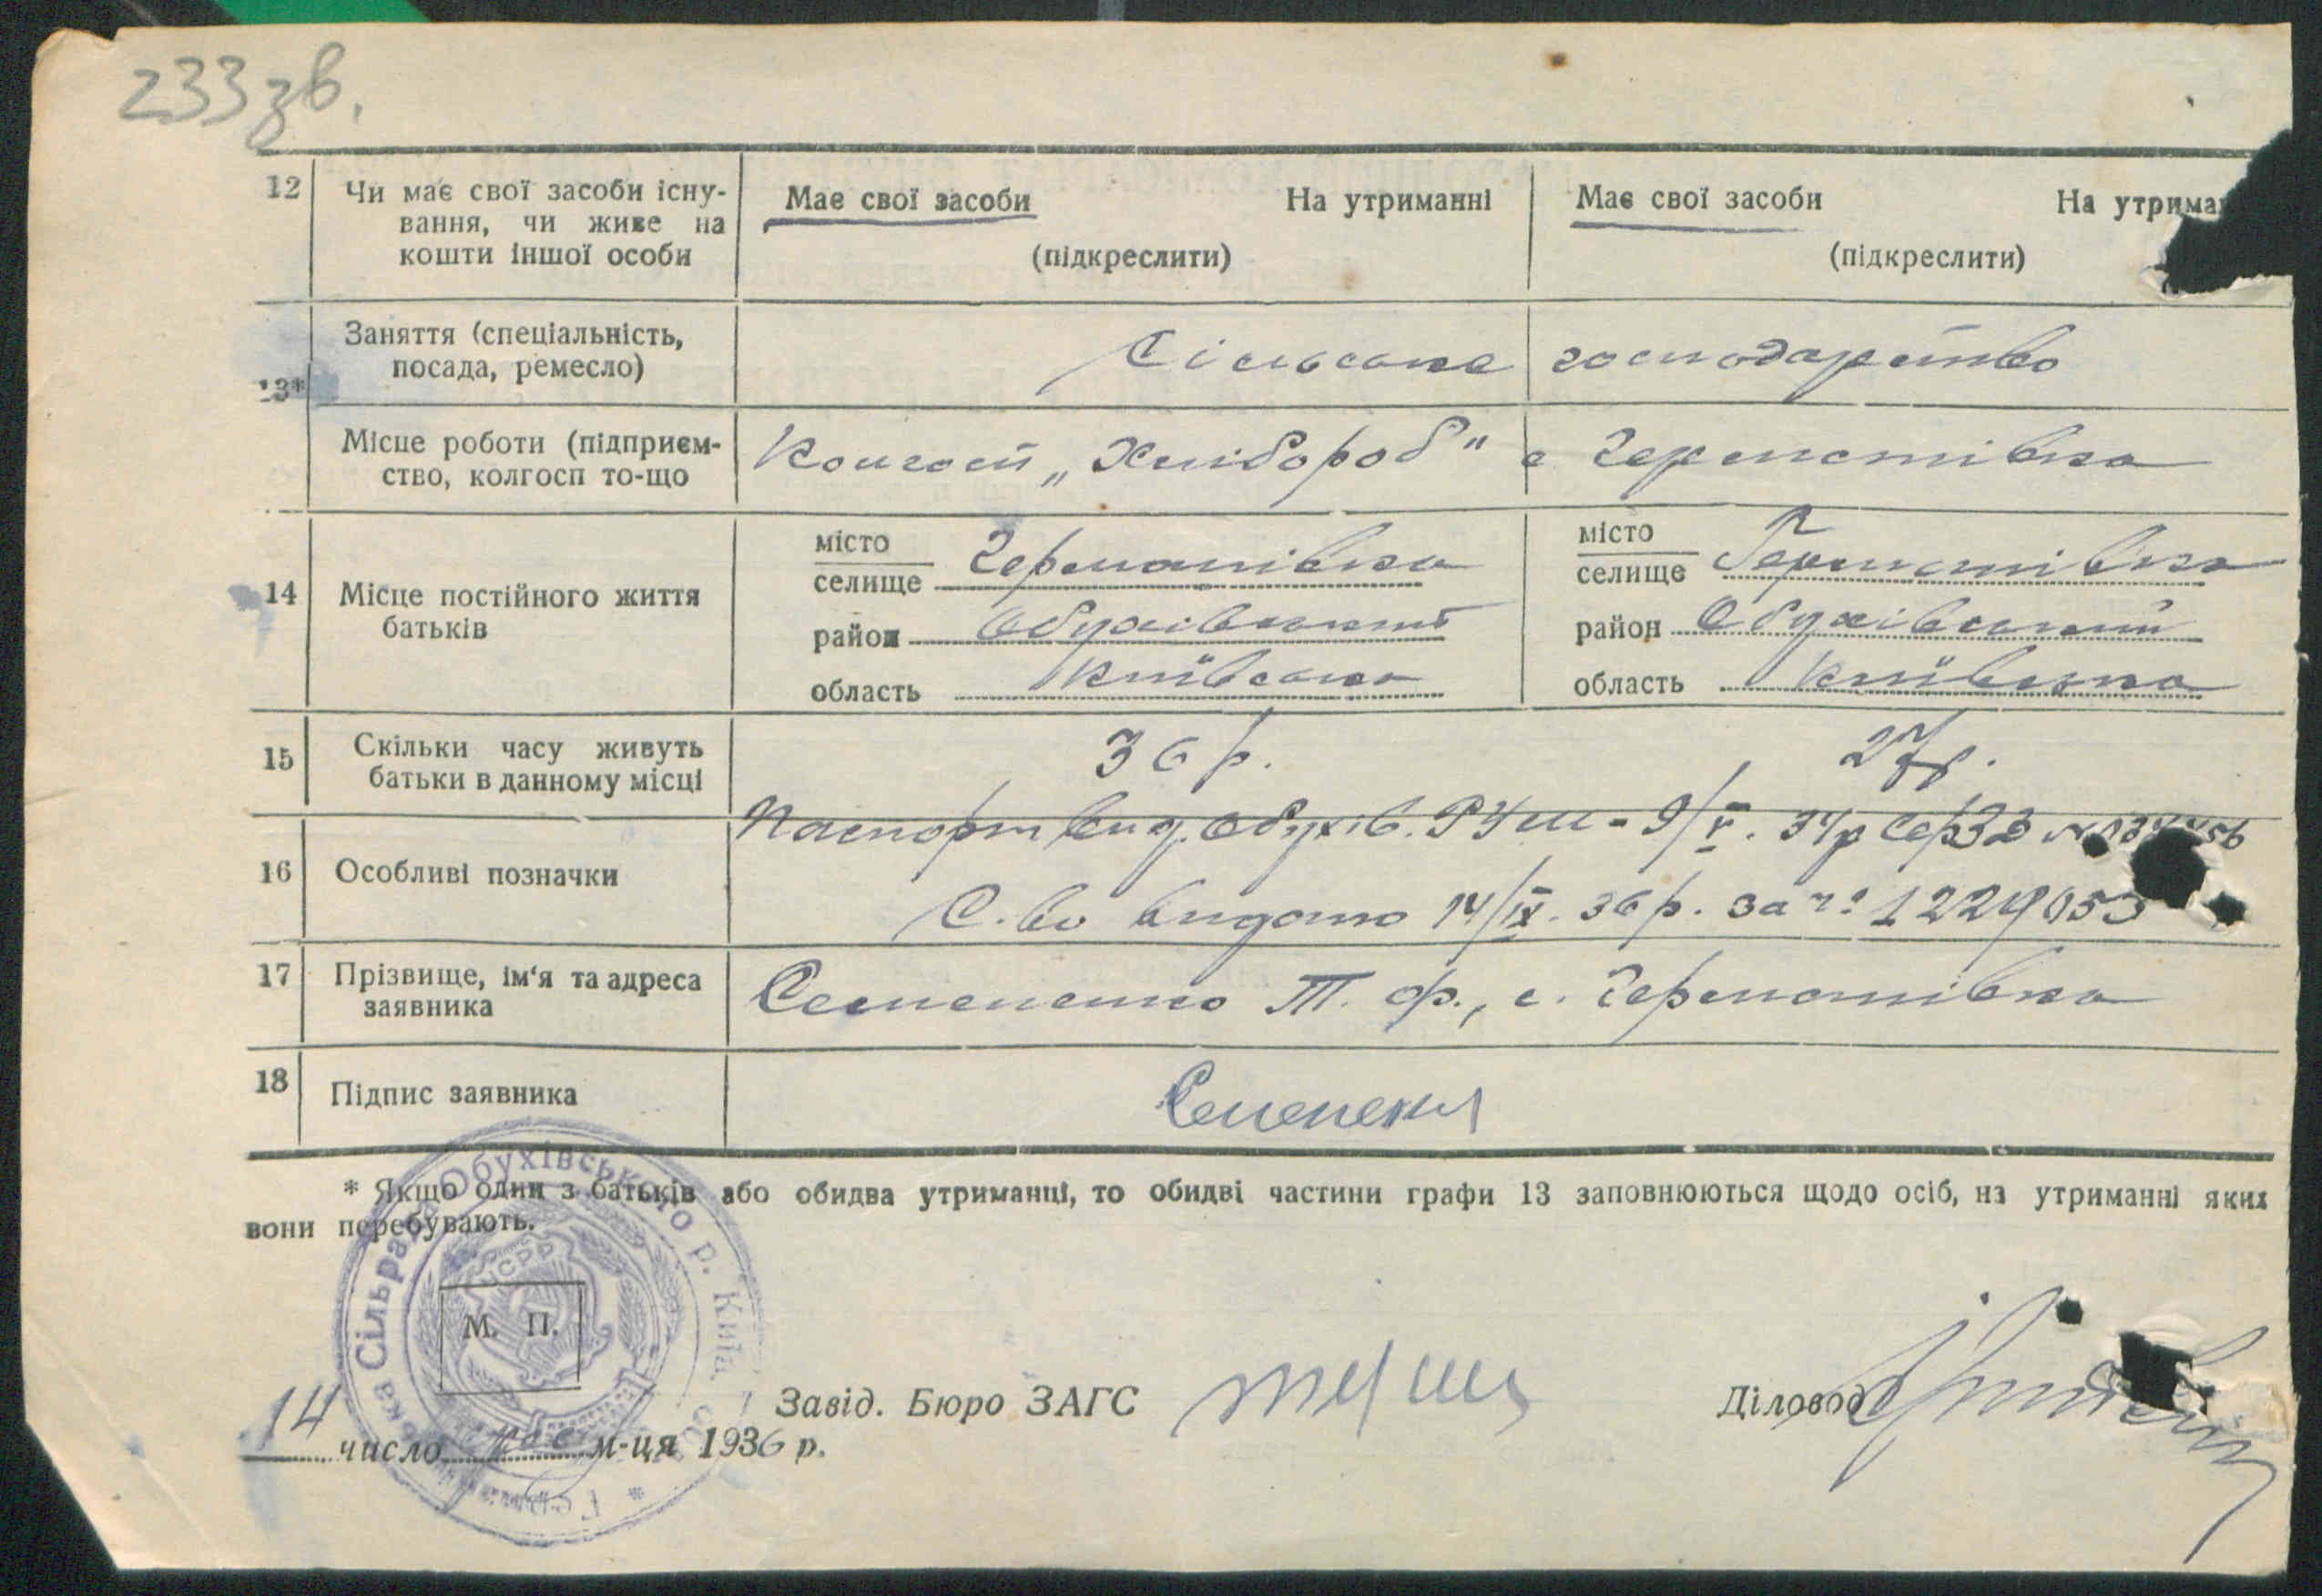 233 зв.
12 Чи має свої засоби існу-
вання, чи живе на
кошти іншої особи
Має свої засоби На утриманні
(підкреслити)
Має свої засоби На утриман
(підкреслити)
13* Заняття (спеціальність,
посада, ремесло)
Сільське господарство
Місце роботи (підприєм-
ство, колгосп то-що
Колгосп „Хлібороб" с Германівка
14 Місце постійного життя
батьків
місто
селище Германівка
район Обухівський
область Київська
місто
селище Германівка
район Обухівський
область Київська
15 Скільки часу живуть
батьки в данному місці
36 р. 27 р.
16 Особливі позначки
Паспорт вид. Обухів. РУМ - 9/V. 34р Сер
С-во видано 14/IX. 36 р. за № 1229053
17 Прізвище, ім'я та адреса
заявника
Семененко Т. Ф., с. Германівка
18 Підпис заявника
Семененко
* Якщо один з батьків або обидва утриманці, то обидві частини графи 13 заповнюються щодо осіб, на утриманні яких
вони перебувають.
Сільрада Обухівського р. Київ.
УСРР
М. П.
Завід. Бюро ЗАГС
Діловод
14 число м-ця 1936 р.